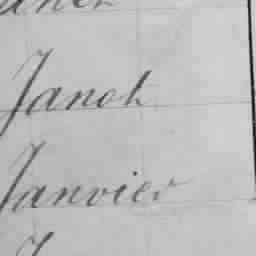 Janot
Janvier